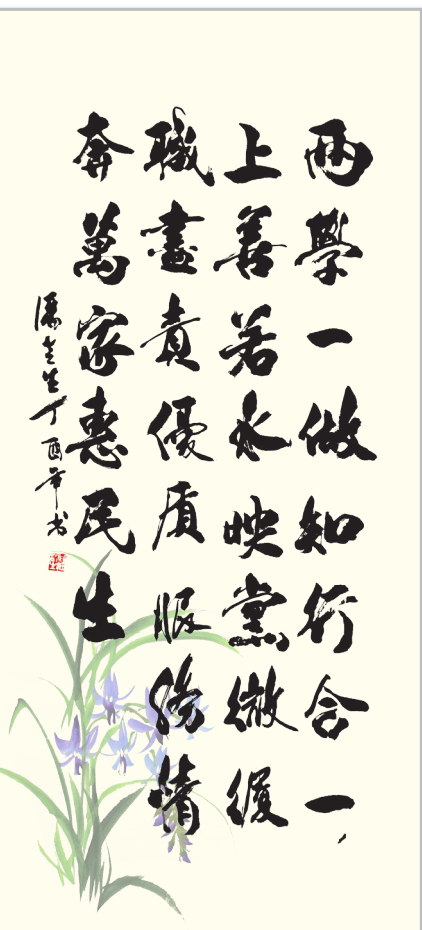 兩學一做知行合一，
上善若水映黨徽履
職盡責優質服務情
奔萬家惠民生
生丁酉年书